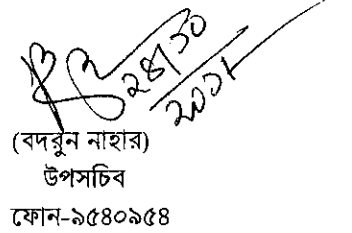 ২৪/১০
(বদরুন নাহার)
উপসচিব
ফোন-৯৫৪০৯৫৪